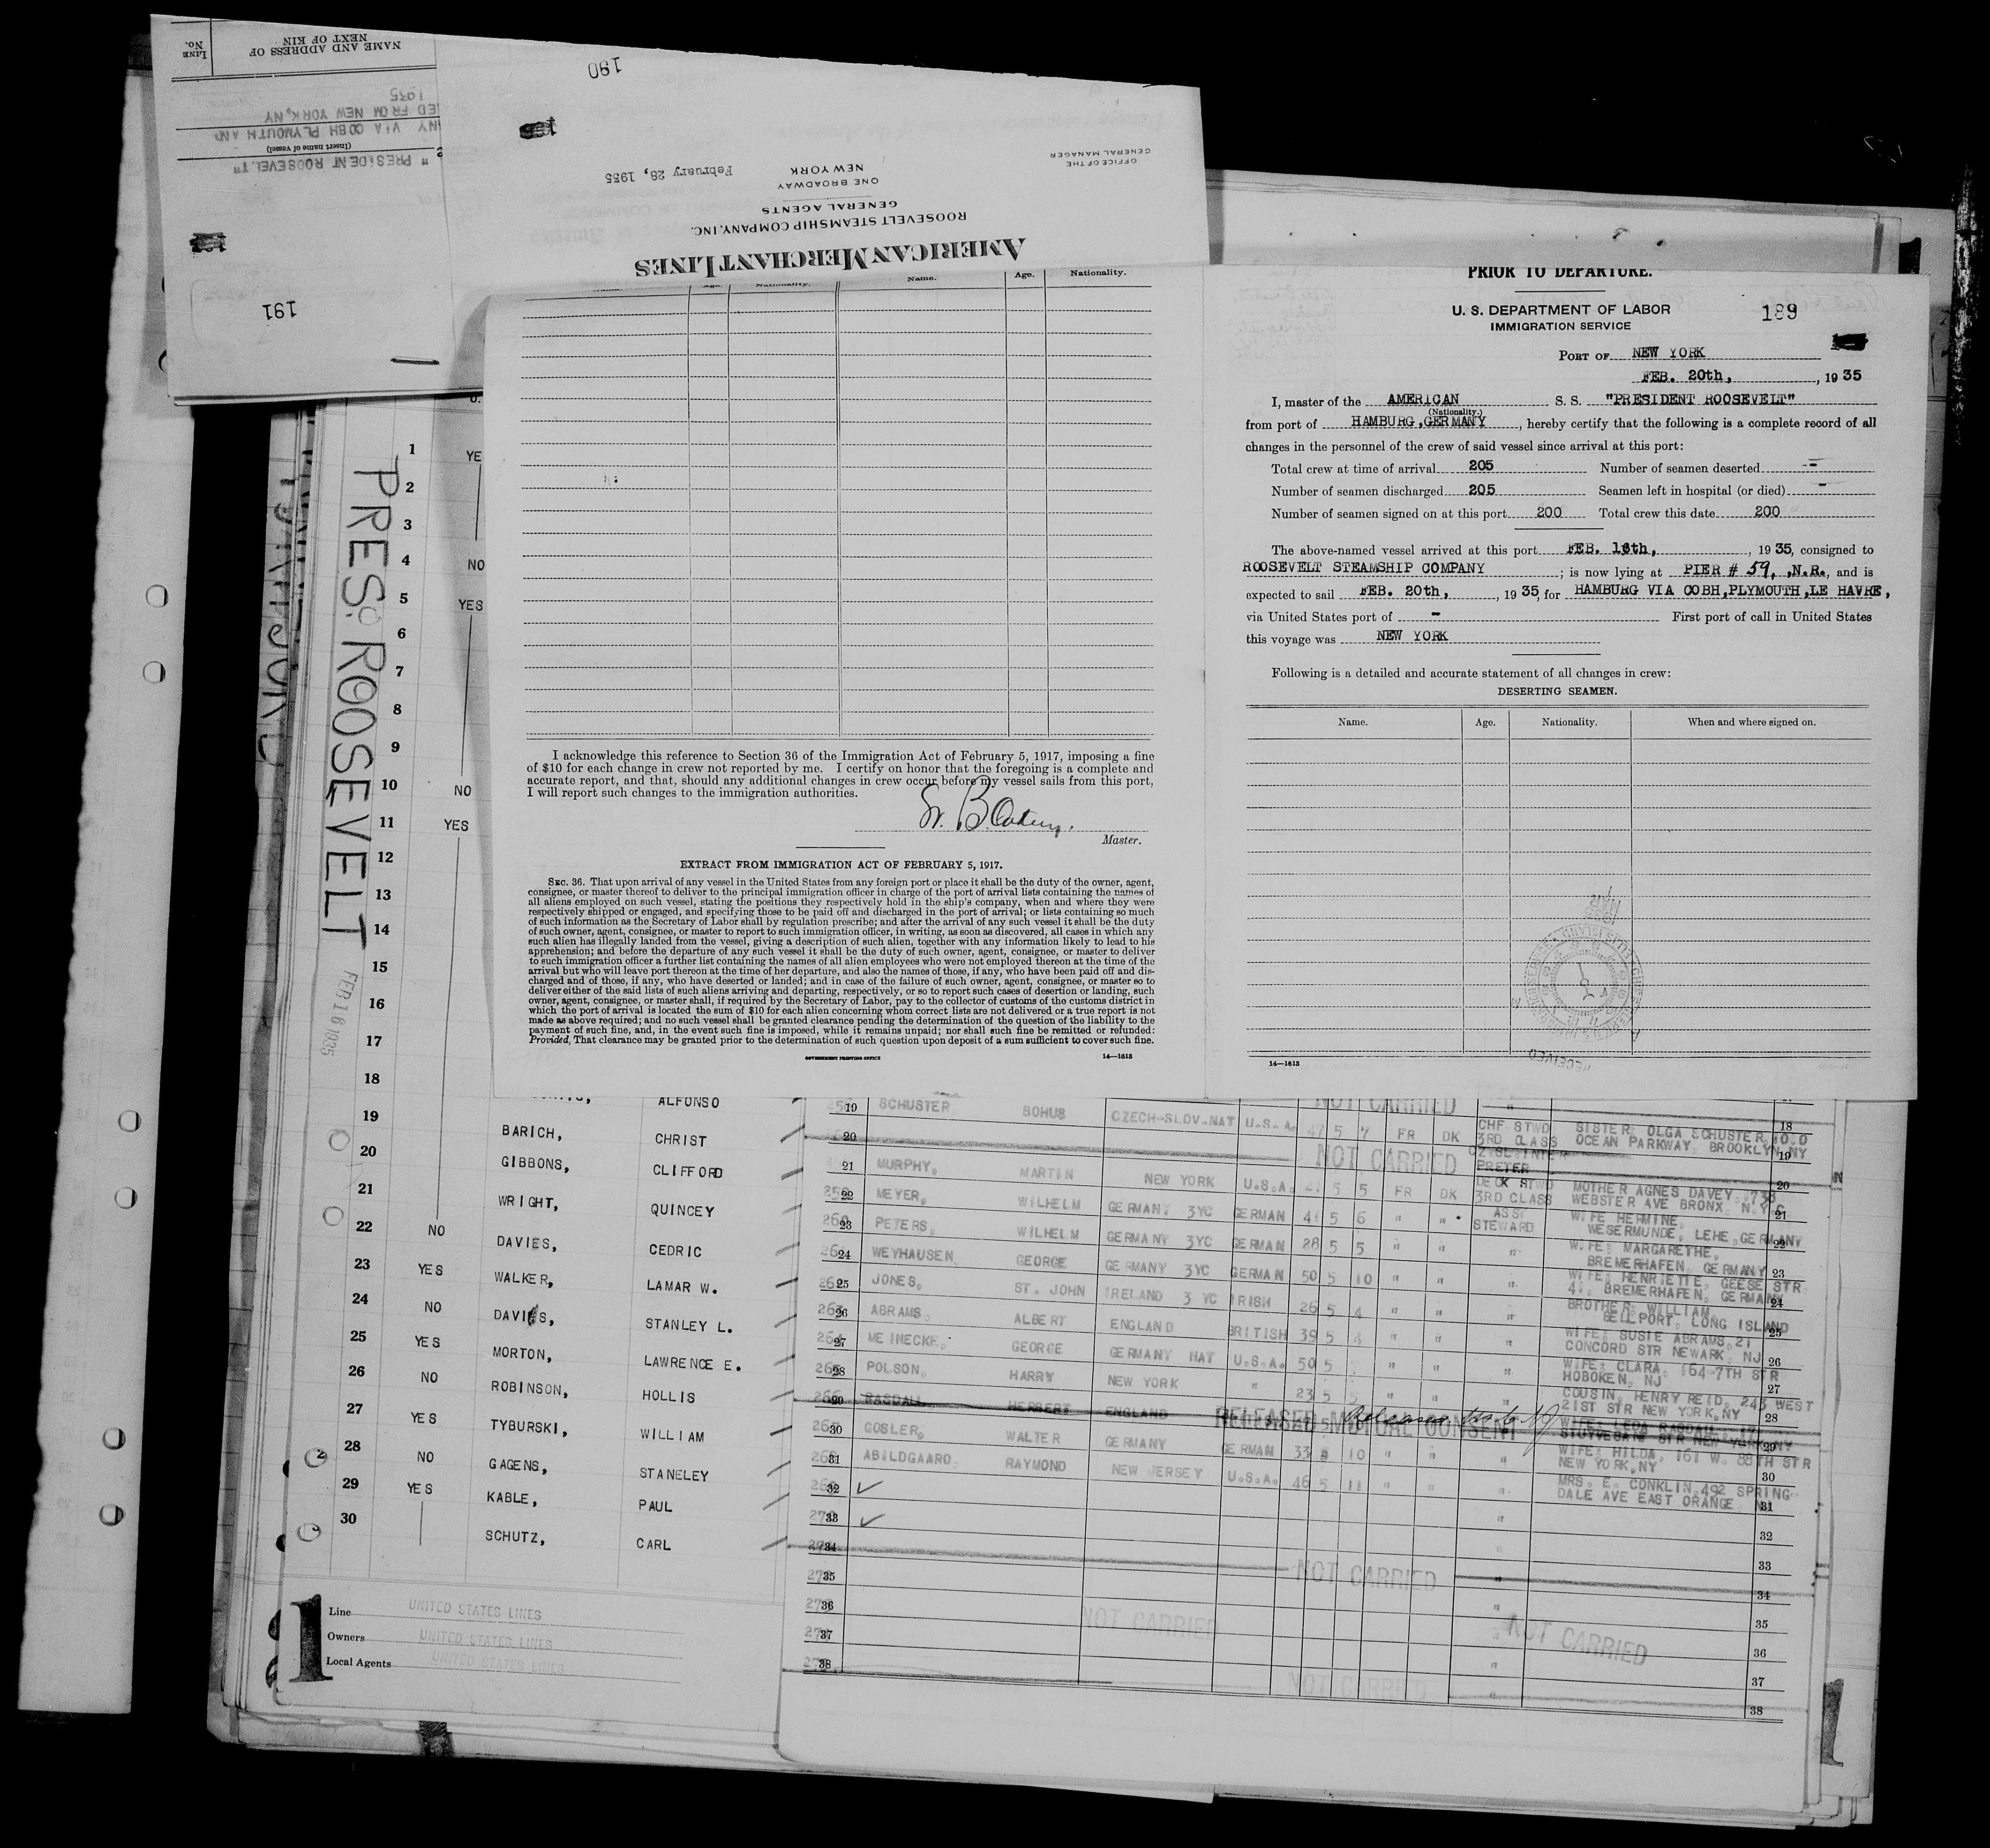 LINE No.
NAME AND ADDRESS OF
NEXT OF KIN
1935
ED FROM NEW YORK, NY
NY VIA COBH PLYMOUTH AND
(Insert name of vessel)
" PRESIDENT ROOSEVELT"
191
190
OFFICE OF THE
GENERAL MANAGER
February 28, 1935
AMERICAN MERCHANT LINES
ROOSEVELT STEAMSHIP COMPANY, INC.
GENERAL AGENTS
ONE BROADWAY
NEW YORK
Name. Age. Nationality.
I acknowledge this reference to Section 36 of the Immigration Act of February 5, 1917, imposing a fine
of $10 for each change in crew not reported by me. I certify on honor that the foregoing is a complete and
accurate report, and that, should any additional changes in crew occur before my vessel sails from this port,
I will report such changes to the immigration authorities.
Master.
EXTRACT FROM IMMIGRATION ACT OF FEBRUARY 5, 1917.
SEC. 36. That upon arrival of any vessel in the United States from any foreign port or place it shall be the duty of the owner, agent,
consignee, or master thereof to deliver to the principal immigration officer in charge of the port of arrival lists containing the names of
all aliens employed on such vessel, stating the positions they respectively hold in the ship's company, when and where they were
respectively shipped or engaged, and specifying those to be paid off and discharged in the port of arrival; or lists containing so much
of such information as the Secretary of Labor shall by regulation prescribe; and after the arrival of any such vessel it shall be the duty
of such owner, agent, consignee, or master to report to such immigration officer, in writing, as soon as discovered, all cases in which any
such alien has illegally landed from the vessel, giving a description of such alien, together with any information likely to lead to his
apprehension; and before the departure of any such vessel it shall be the duty of such owner, agent, consignee, or master to deliver
to such immigration officer a further list containing the names of all alien employees who were not employed thereon at the time of the
arrival but who will leave port thereon at the time of her departure, and also the names of those, if any, who have been paid off and dis-
charged and of those, if any, who have deserted or landed; and in case of the failure of such owner, agent, consignee, or master so to
deliver either of the said lists of such aliens arriving and departing, respectively, or so to report such cases of desertion or landing, such
owner, agent, consignee, or master shall, if required by the Secretary of Labor, pay to the collector of customs of the customs district in
which the port of arrival is located the sum of $10 for each alien concerning whom correct lists are not delivered or a true report is not
made as above required; and no such vessel shall be granted clearance pending the determination of the question of the liability to the
payment of such fine, and, in the event such fine is imposed, while it remains unpaid; nor shall such fine be remitted or refunded:
Provided, That clearance may be granted prior to the determination of such question upon deposit of a sum sufficient to cover such fine.
GOVERNMENT PRINTING OFFICE 14—1613
PRIOR TO DEPARTURE.
U. S. DEPARTMENT OF LABOR
IMMIGRATION SERVICE
189
PORT OF NEW YORK
FEB. 20th, , 1935
I, master of the AMERICAN S. S. "PRESIDENT ROOSEVELT"
(Nationality.)
from port of HAMBURG,GERMANY , hereby certify that the following is a complete record of all
changes in the personnel of the crew of said vessel since arrival at this port:
Total crew at time of arrival 205 Number of seamen deserted -
Number of seamen discharged 205 Seamen left in hospital (or died) -
Number of seamen signed on at this port 200 Total crew this date 200
The above-named vessel arrived at this port FEB. 16th, , 1935, consigned to
ROOSEVELT STEAMSHIP COMPANY ; is now lying at PIER # 59, ,N.R., and is
expected to sail FEB. 20th, , 1935, for HAMBURG VIA COBH,PLYMOUTH,LE HAVRE,
via United States port of - First port of call in United States
this voyage was NEW YORK
Following is a detailed and accurate statement of all changes in crew:
DESERTING SEAMEN.
Name. Age. Nationality. When and where signed on.
MAR
1935
RECEIVED
14—1613
PRES. ROOSEVELT
FEB 16 1935
1 YE
2
3
4 NO
5 YES
6
7
8
9
10 NO
11 YES
12
13
14
15
16
17
18
19 ALFONSO
20 BARICH, CHRIST
21 GIBBONS, CLIFFORD
22 NO WRIGHT, QUINCEY
23 YES DAVIES, CEDRIC
24 NO WALKER, LAMAR W.
25 YES DAVIES, STANLEY L.
26 NO MORTON, LAWRENCE E.
27 YES ROBINSON, HOLLIS
28 NO TYBURSKI, WILLIAM
29 YES GAGENS, STANELEY
30 KABLE, PAUL
SCHUTZ, CARL
Line UNITED STATES LINES
Owners UNITED STATES LINES
Local Agents UNITED STATES LINES
1
NOT CARRIED
19 SCHUSTER BOHUS CZECH-SLOV.NAT U.S.A. 47 5 7 FR DK CHF STWD 3RD CLASS SISTER: OLGA SCHUSTER, 1010 OCEAN PARKWAY, BROOKLYN NY 18
20 NOT CARRIED 19
21 MURPHY, MARTIN NEW YORK U.S.A. 5 5 FR DK DECK STWD 3RD CLASS MOTHER AGNES DAVEY, WEBSTER AVE BRONX, N.Y. 20
22 MEYER, WILHELM GERMANY 3YC GERMAN 5 6 " " ASS STEWARD WIFE HERMINE, WESERMUNDE, LEHE, GERMANY 21
23 PETERS, WILHELM GERMANY 3YC GERMAN 28 5 5 " " " WIFE: MARGARETHE, BREMERHAFEN, GERMANY 22
24 WEYHAUSEN GEORGE GERMANY 3YC GERMAN 50 5 10 " " " WIFE: HENRIETTE, GEESE STR 41, BREMERHAFEN, GERMANY 23
25 JONES, ST. JOHN IRELAND 3 YC IRISH 26 5 4 " " " BROTHER: WILLIAM, BELLPORT, LONG ISLAND 24
26 ABRAMS, ALBERT ENGLAND BRITISH 39 5 4 " " " WIFE: SUSIE ABRAMS, 21 CONCORD STR NEWARK, NJ 25
27 MEINECKE, GEORGE GERMANY NAT U.S.A. 50 5 " " " WIFE: CLARA, 164-7TH STR HOBOKEN, NJ 26
28 POLSON, HARRY NEW YORK " 23 5 5 " " " COUSIN, HENRY REID, 243 WEST 21ST STR NEW YORK,NY 27
29 RASDALL HERBERT ENGLAND RELEASED MUTUAL CONSENT WIFE: LEDA RASDALL, STUYVESANT STR NEW YORK NY 28
30 GOSLER, WALTER GERMANY GERMAN 33 5 10 " " " WIFE: HILDA, 161 W. 88TH STR NEW YORK,NY 29
31 ABILDGAARD, RAYMOND NEW JERSEY U.S.A. 46 5 11 " " " MRS. E. CONKLIN,492 SPRING-DALE AVE EAST ORANGE, NJ 30
32 " 31
33 " 32
34 NOT CARRIED 33
35 " 34
36 NOT CARRIED " NOT CARRIED 35
37 " 36
38 NOT CARRIED " 37
38